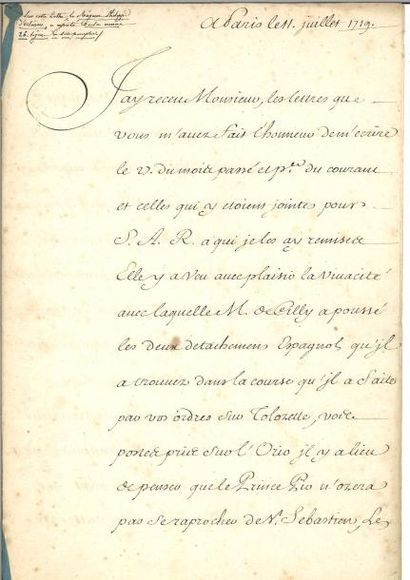 Dans cette lettre, le Régent Philippe
d'Orléans, a ajouté de sa main
26 lignes
A Paris le 11. juillet 1719.
J'ay receu Monsieur, les lettres que
vous m'avez fait l'honneur de m'ecrire
le v. du mois passé et p.er du courant
et celles qui y etoient jointes pour
S. A. R. a qui je les ay remises
Elle y a veu avec plaisir la vivacité
avec laquelle M. de Cilly a poussé
les deux detachemens Espagnols qu'jl
a trouvez dans la course qu'jl a faite
par vos ordres sur Tolozette, votre
postée prise sur l'Orio jl y a lieu
de penser que le Prince Pio n'ozera
pas se raprocher de St. Sebastien, Le